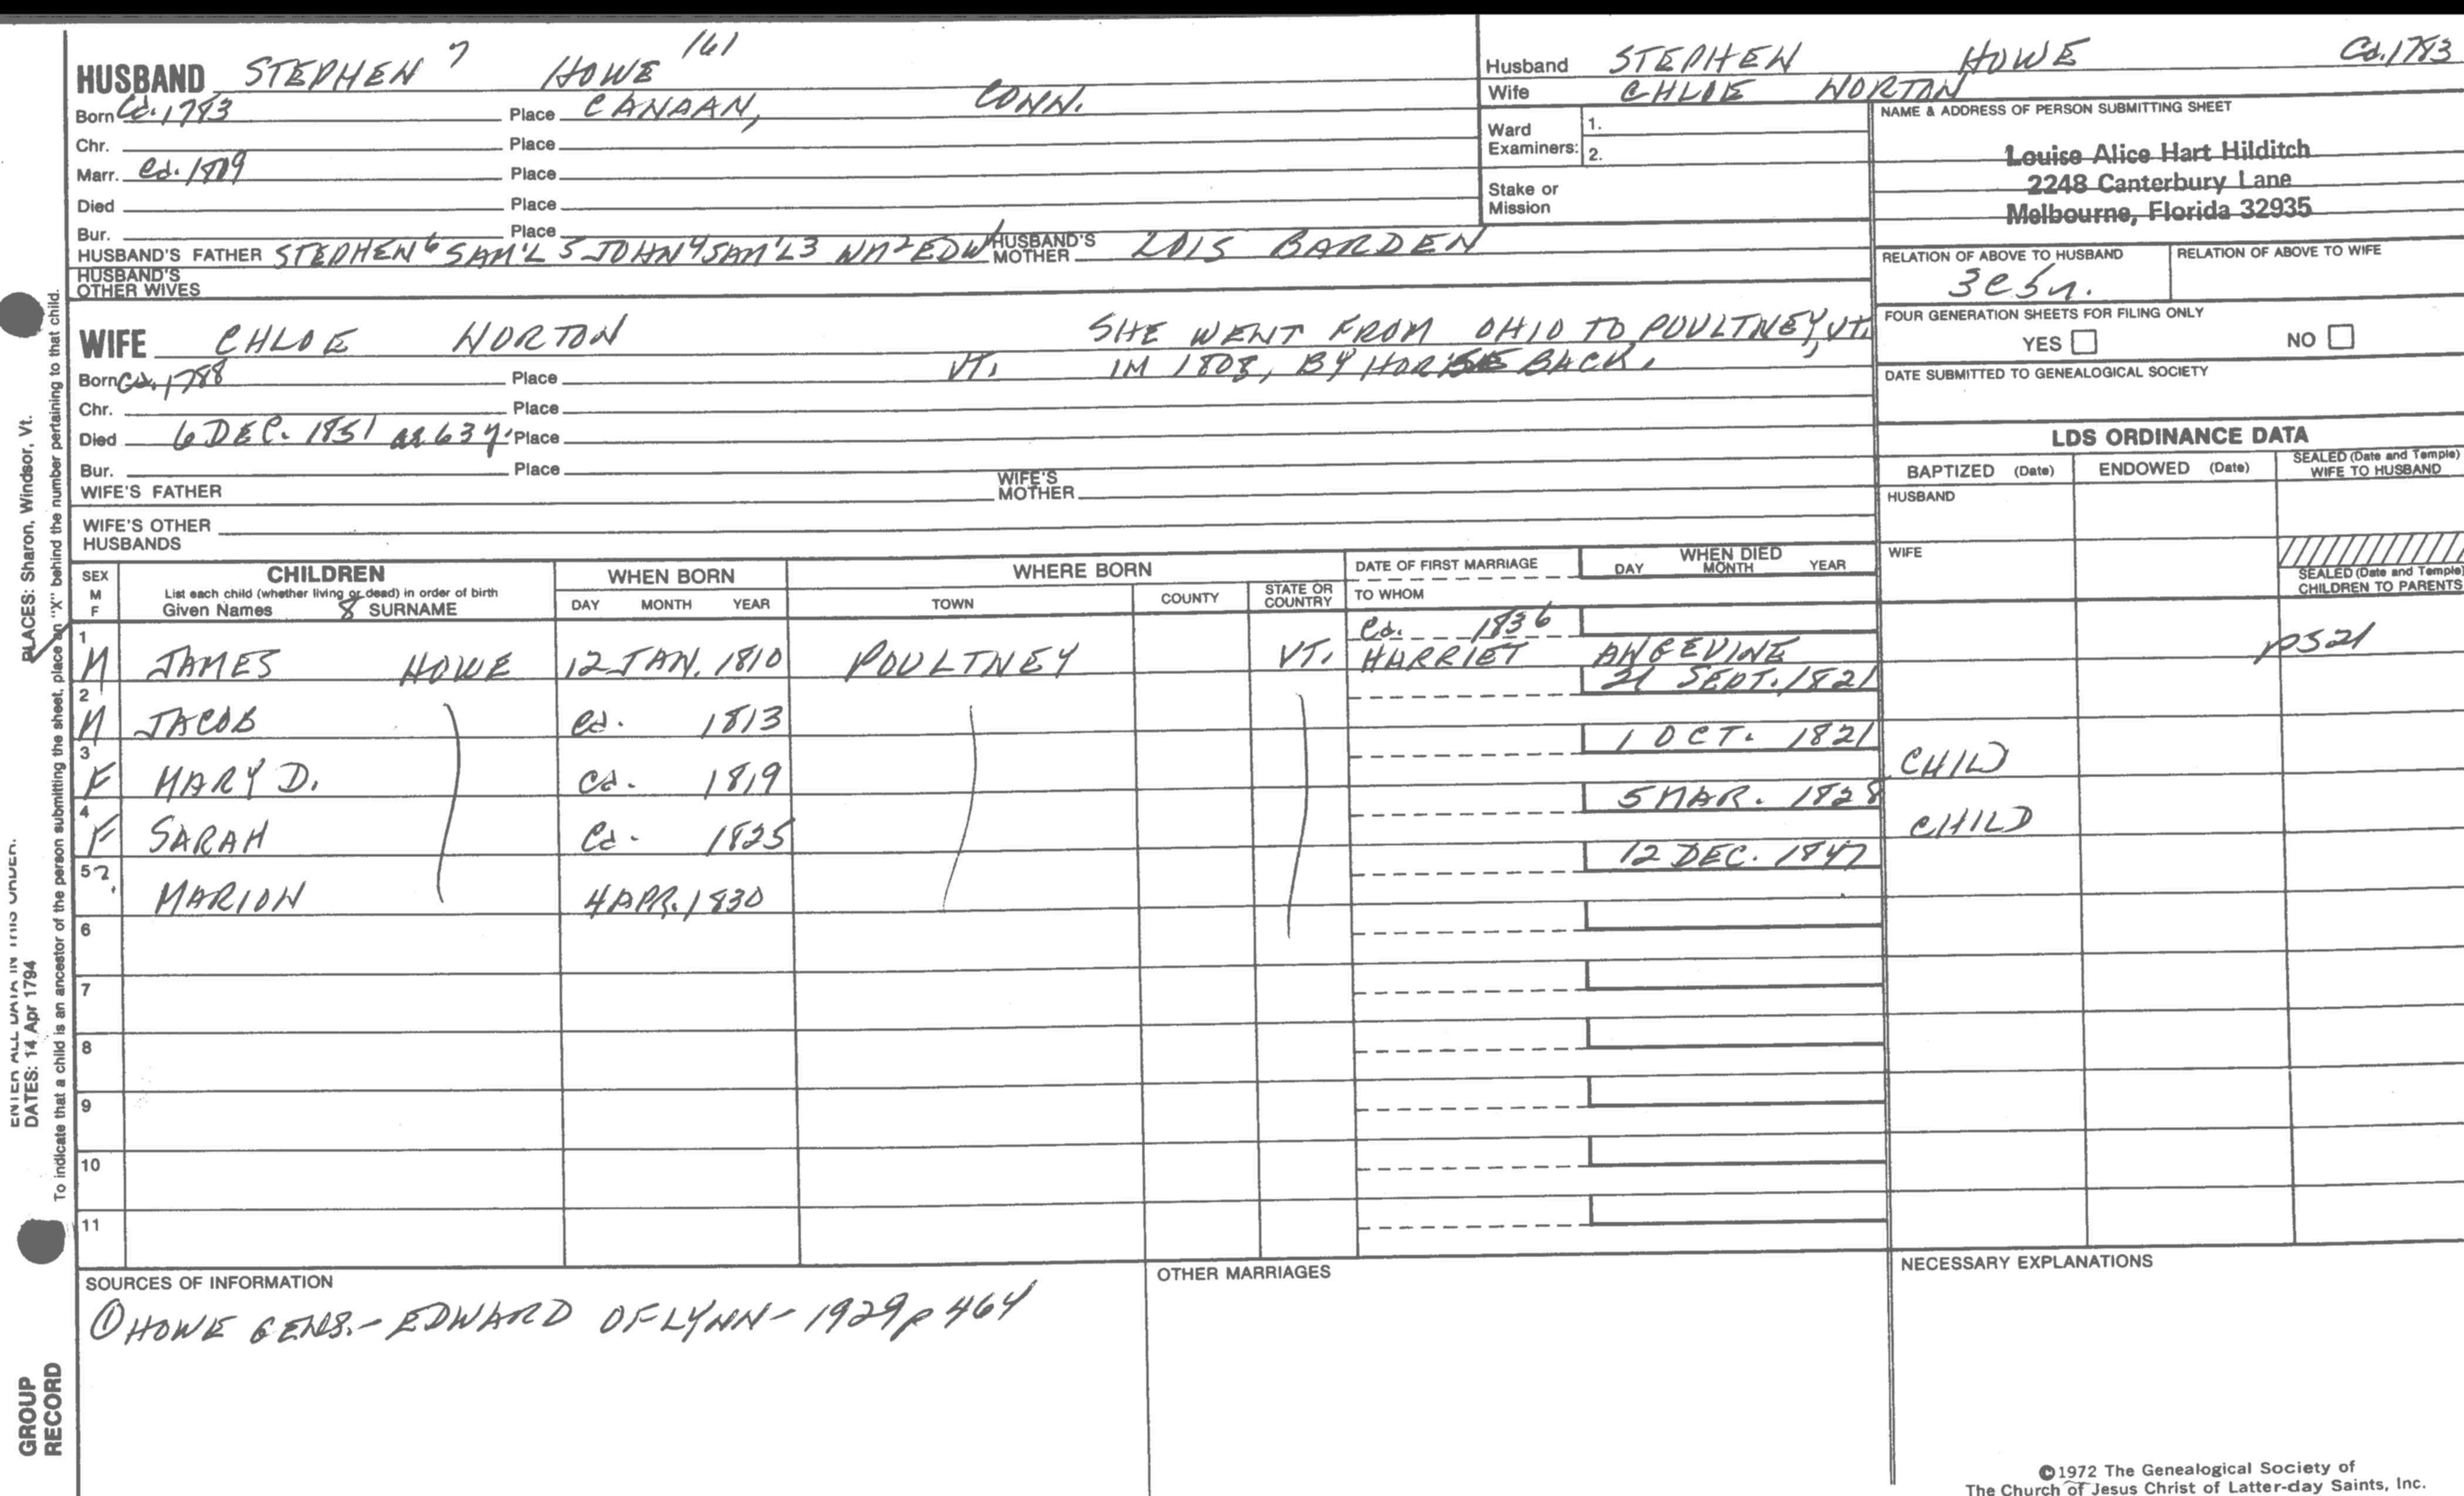 HUSBAND STEPHEN 7 HOWE 161
Born Ca. 1783 Place CANAAN, CONN.
Chr. Place
Marr. Ca. 1809 Place
Died Place
Bur. Place
HUSBAND'S FATHER STEPHEN 6 SAM'L 5 JOHN 4 SAM'L 3 WM 2 EDW 1 HUSBAND'S MOTHER LOIS BARDEN
HUSBAND'S OTHER WIVES
Husband STEPHEN HOWE Ca. 1783
Wife CHLOE NORTON
Ward Examiners: 1.
2.
Stake or Mission
NAME & ADDRESS OF PERSON SUBMITTING SHEET
Louise Alice Hart Hilditch
2248 Canterbury Lane
Melbourne, Florida 32935
RELATION OF ABOVE TO HUSBAND RELATION OF ABOVE TO WIFE
3c5r.
FOUR GENERATION SHEETS FOR FILING ONLY
YES NO
DATE SUBMITTED TO GENEALOGICAL SOCIETY
WIFE CHLOE NORTON SHE WENT FROM OHIO TO POULTNEY, VT.
Born Ca. 1788 Place VT. IN 1808, BY HORSE BACK.
Chr. Place
Died 6 DEC. 1851 ae 63 y. Place
Bur. Place
WIFE'S FATHER WIFE'S MOTHER
WIFE'S OTHER HUSBANDS
LDS ORDINANCE DATA
BAPTIZED (Date) ENDOWED (Date) SEALED (Date and Temple) WIFE TO HUSBAND
HUSBAND
WIFE
SEALED (Date and Temple) CHILDREN TO PARENTS
SEX M F CHILDREN
List each child (whether living or dead) in order of birth
Given Names 8 SURNAME
WHEN BORN
DAY MONTH YEAR
WHERE BORN
TOWN COUNTY STATE OR COUNTRY
DATE OF FIRST MARRIAGE
TO WHOM
WHEN DIED
DAY MONTH YEAR
Ca. 1836
1 M JAMES HOWE 12 JAN. 1810 POULTNEY VT. HARRIET ANGEVINE p521
21 SEPT. 1821
2 M JACOB Ca. 1813
1 OCT. 1821
3 F MARY D. Ca. 1819 CHILD
5 MAR. 1828
4 F SARAH Ca. 1825 CHILD
12 DEC. 1847
5 ?. MARION 4 APR. 1830
6
7
8
9
10
11
SOURCES OF INFORMATION
① HOWE GENS. - EDWARD OF LYNN - 1929 p 464
OTHER MARRIAGES
NECESSARY EXPLANATIONS
©1972 The Genealogical Society of
The Church of Jesus Christ of Latter-day Saints, Inc.
PLACES: Sharon, Windsor, Vt.
To indicate that a child is an ancestor of the person submitting the sheet, place an "X" behind the number pertaining to that child.
ENTER ALL DATA IN THIS ORDER.
DATES: 14 Apr 1794
GROUP
RECORD